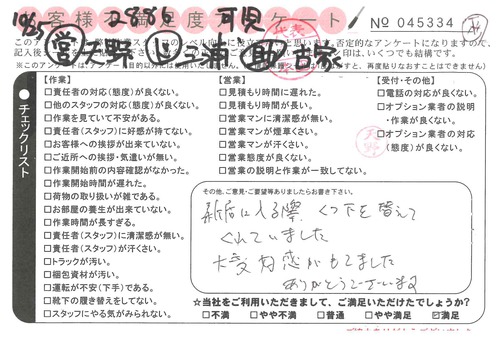 お客様不満足度アンケート No 045334
※このアンケートは、アンケート目的以外には使用いたしません。
チェックリスト
【作業】
□責任者の対応(態度)が良くない。
□他のスタッフの対応(態度)が良くない。
□作業を見ていて不安がある。
□責任者(スタッフ)に好感が持てない。
□お客様への挨拶が出来ていない。
□ご近所への挨拶・気遣いが無い。
□作業開始前の内容確認がなかった。
□作業開始時間が遅れた。
□荷物の取り扱いが雑である。
□お部屋の養生が出来ていない。
□作業時間が長すぎる。
□責任者(スタッフ)に清潔感が無い。
□責任者(スタッフ)が汗くさい。
□トラックが汚い。
□梱包資材が汚い。
□運転が不安(下手)である。
□靴下の履き替えをしてない。
□スタッフにやる気がみられない。
【営業】
□見積もり時間に遅れた。
□見積もり時間が長い。
□営業マンに清潔感が無い。
□営業マンが煙草くさい。
□営業マンが汗くさい。
□営業態度が良くない。
□営業の説明と作業が一致してない。
【受付・その他】
□電話の対応が良くない。
□オプション業者の説明・作業が良くない。
□オプション業者の対応(態度)が良くない。
その他、ご意見・ご要望等ありましたらお書き下さい。
新居に入る際、くつ下を替えて
くれていました
大変好感がもてました
ありがとうございます
☆当社をご利用いただきまして、ご満足いただけたでしょうか?
□不満 □やや不満 □普通 □やや満足 ☑満足